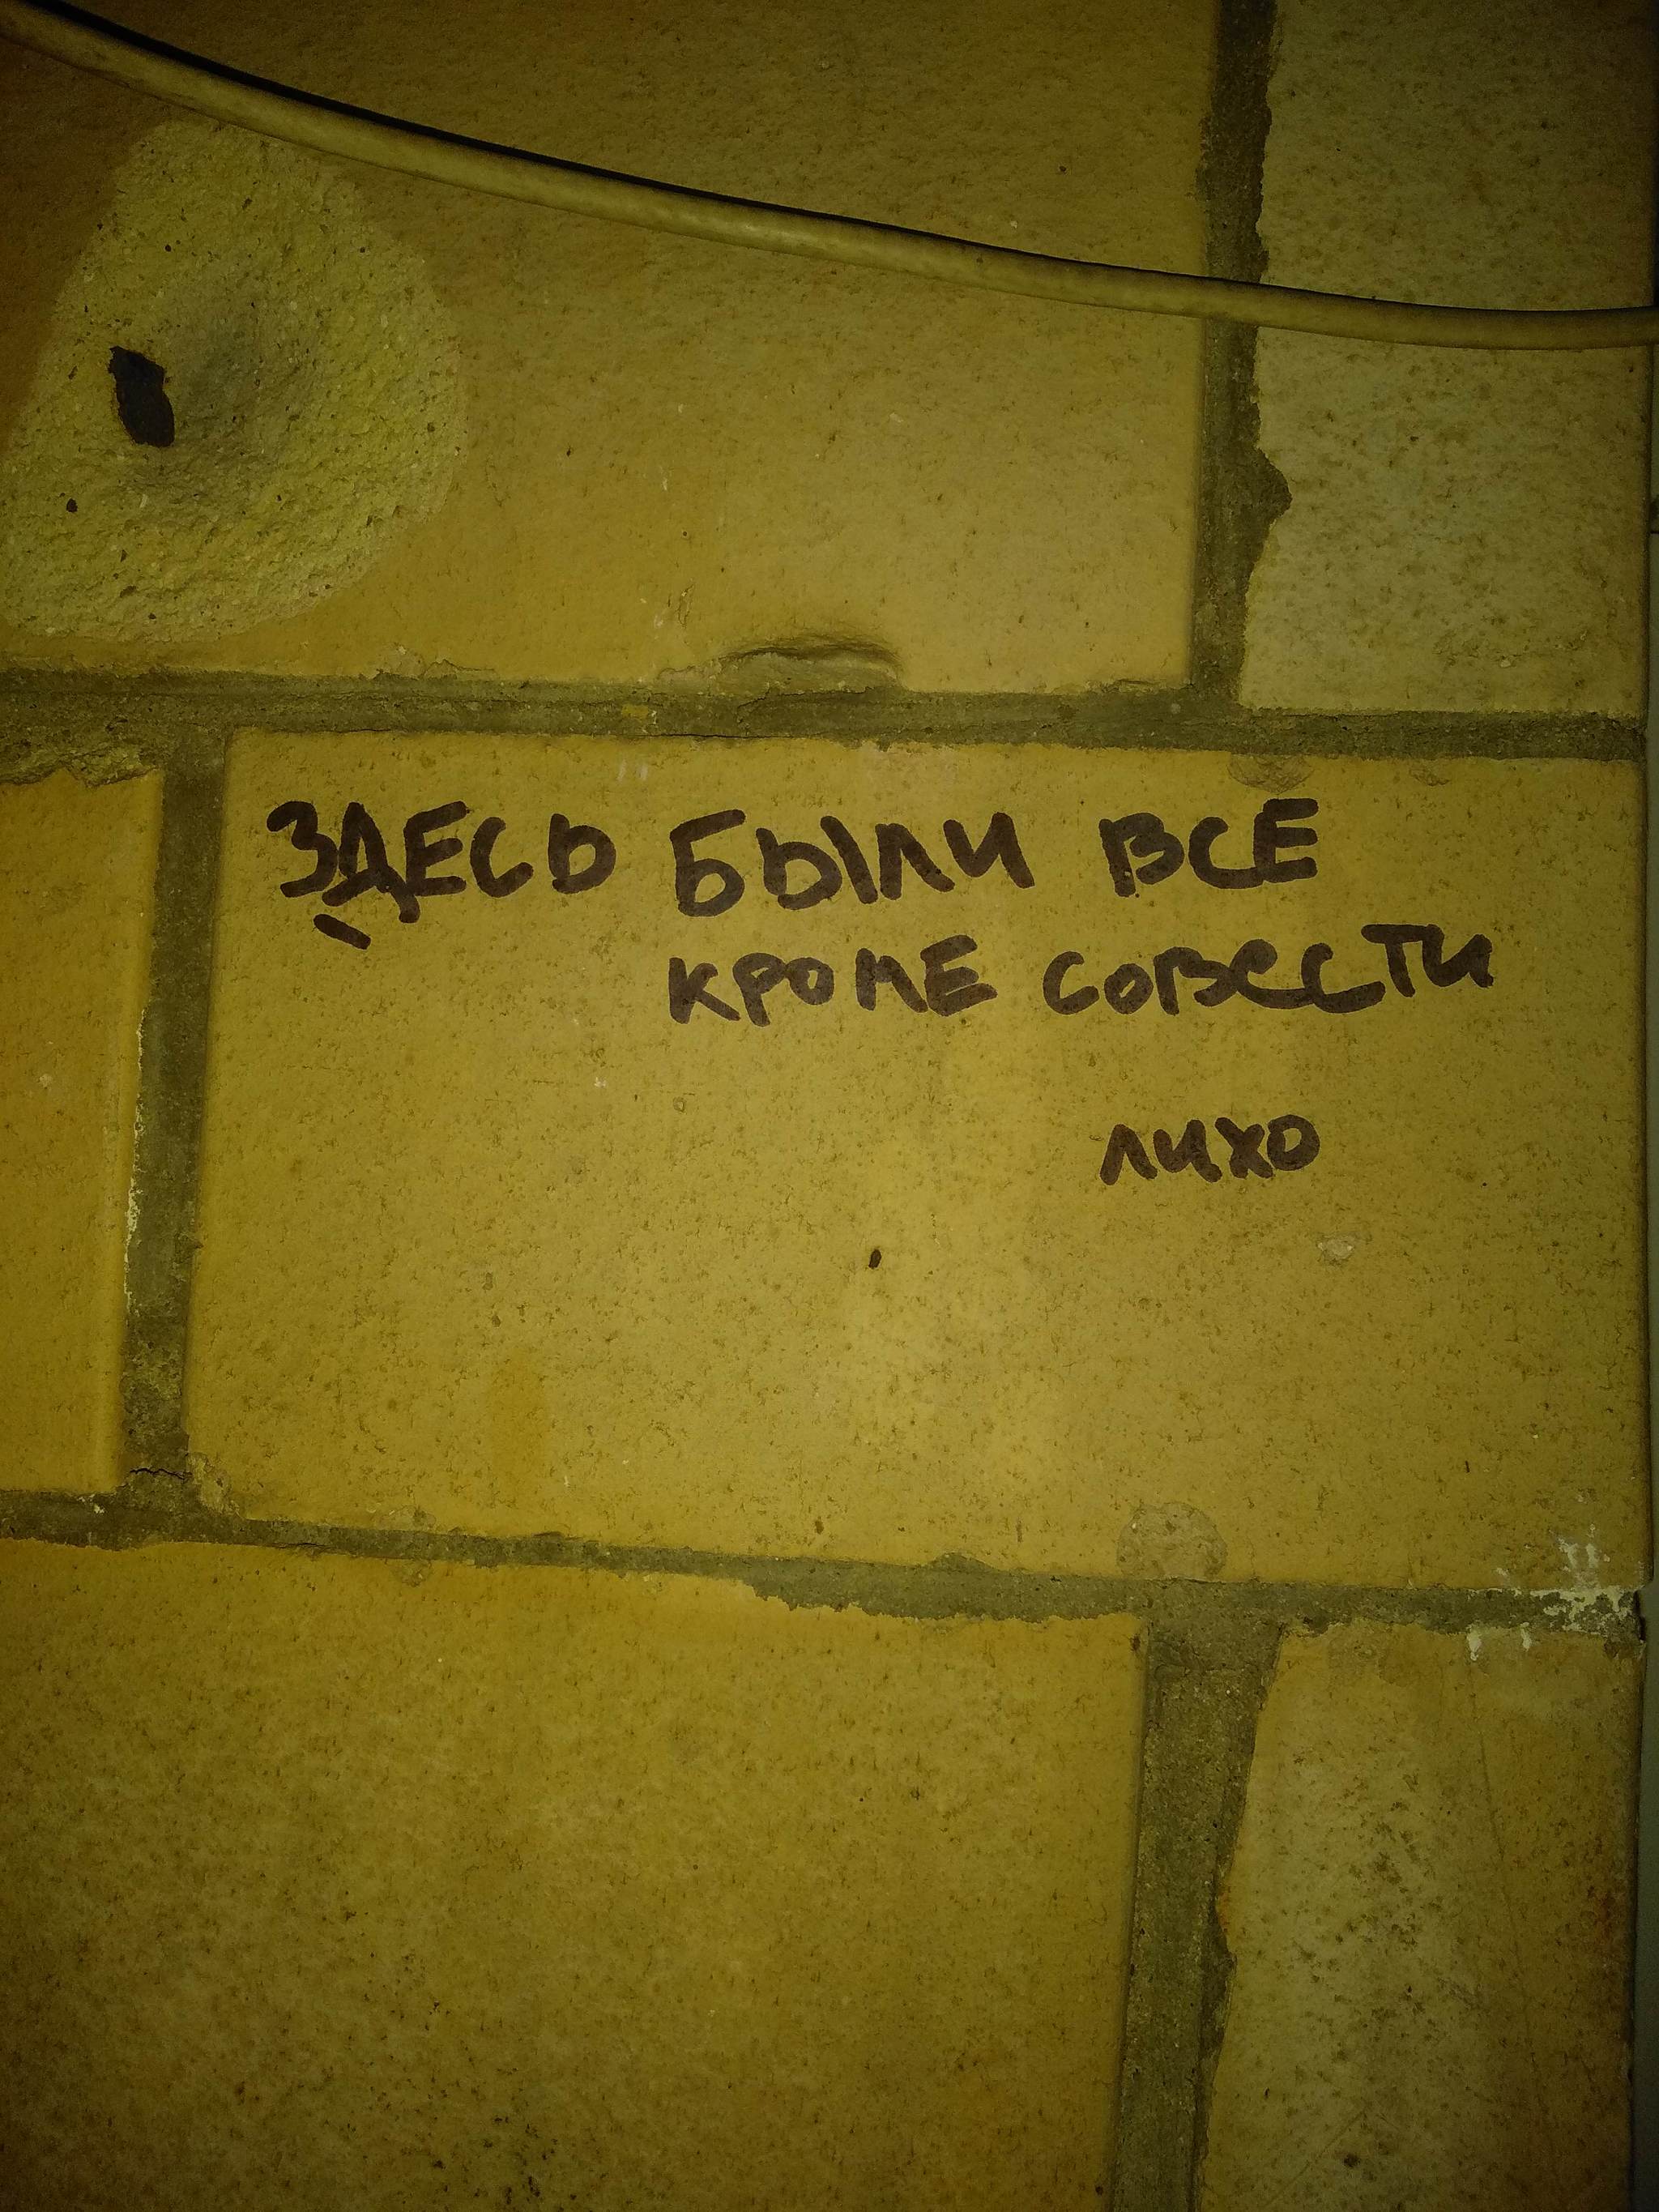 ЗДЕСЬ БЫЛИ ВСЕ
КРОМЕ СОВЕСТИ
ЛИХО